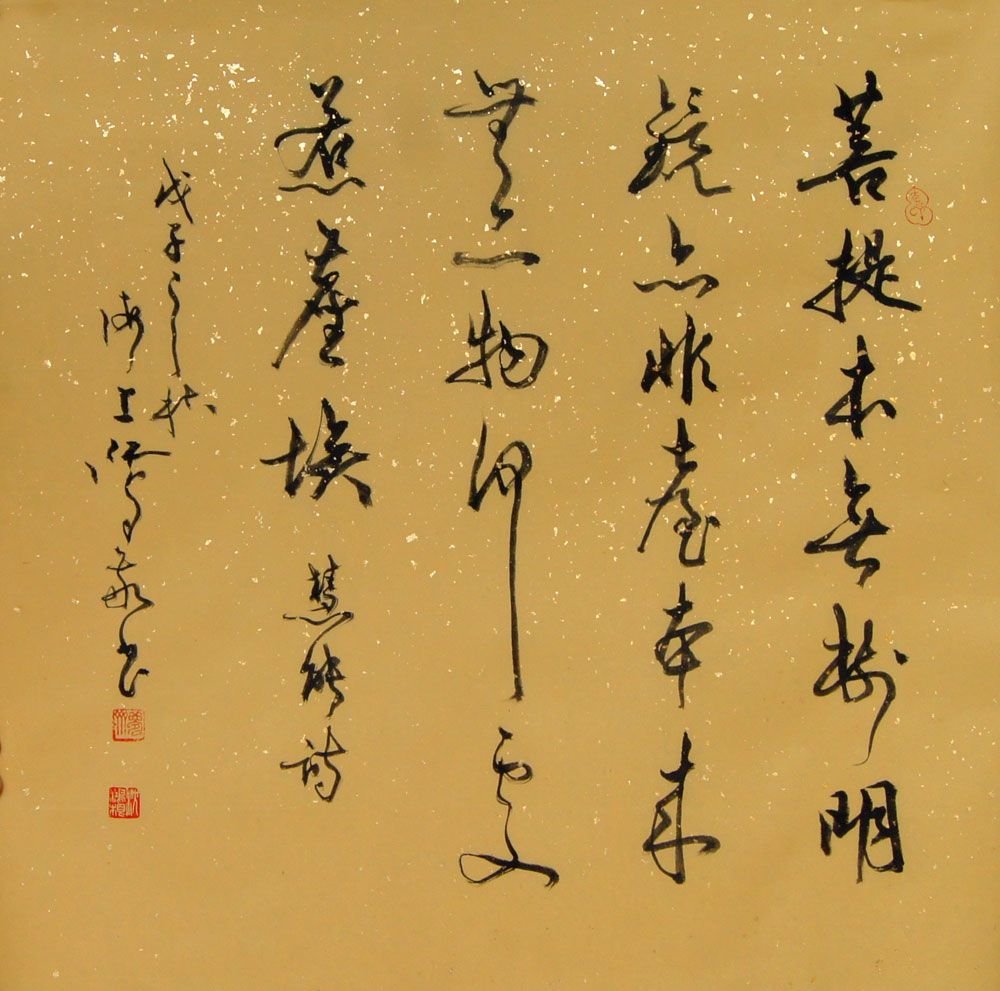 菩提本無樹明
鏡亦非臺本來
無一物何處
惹塵埃 慧能詩
戊子之秋
海上 書